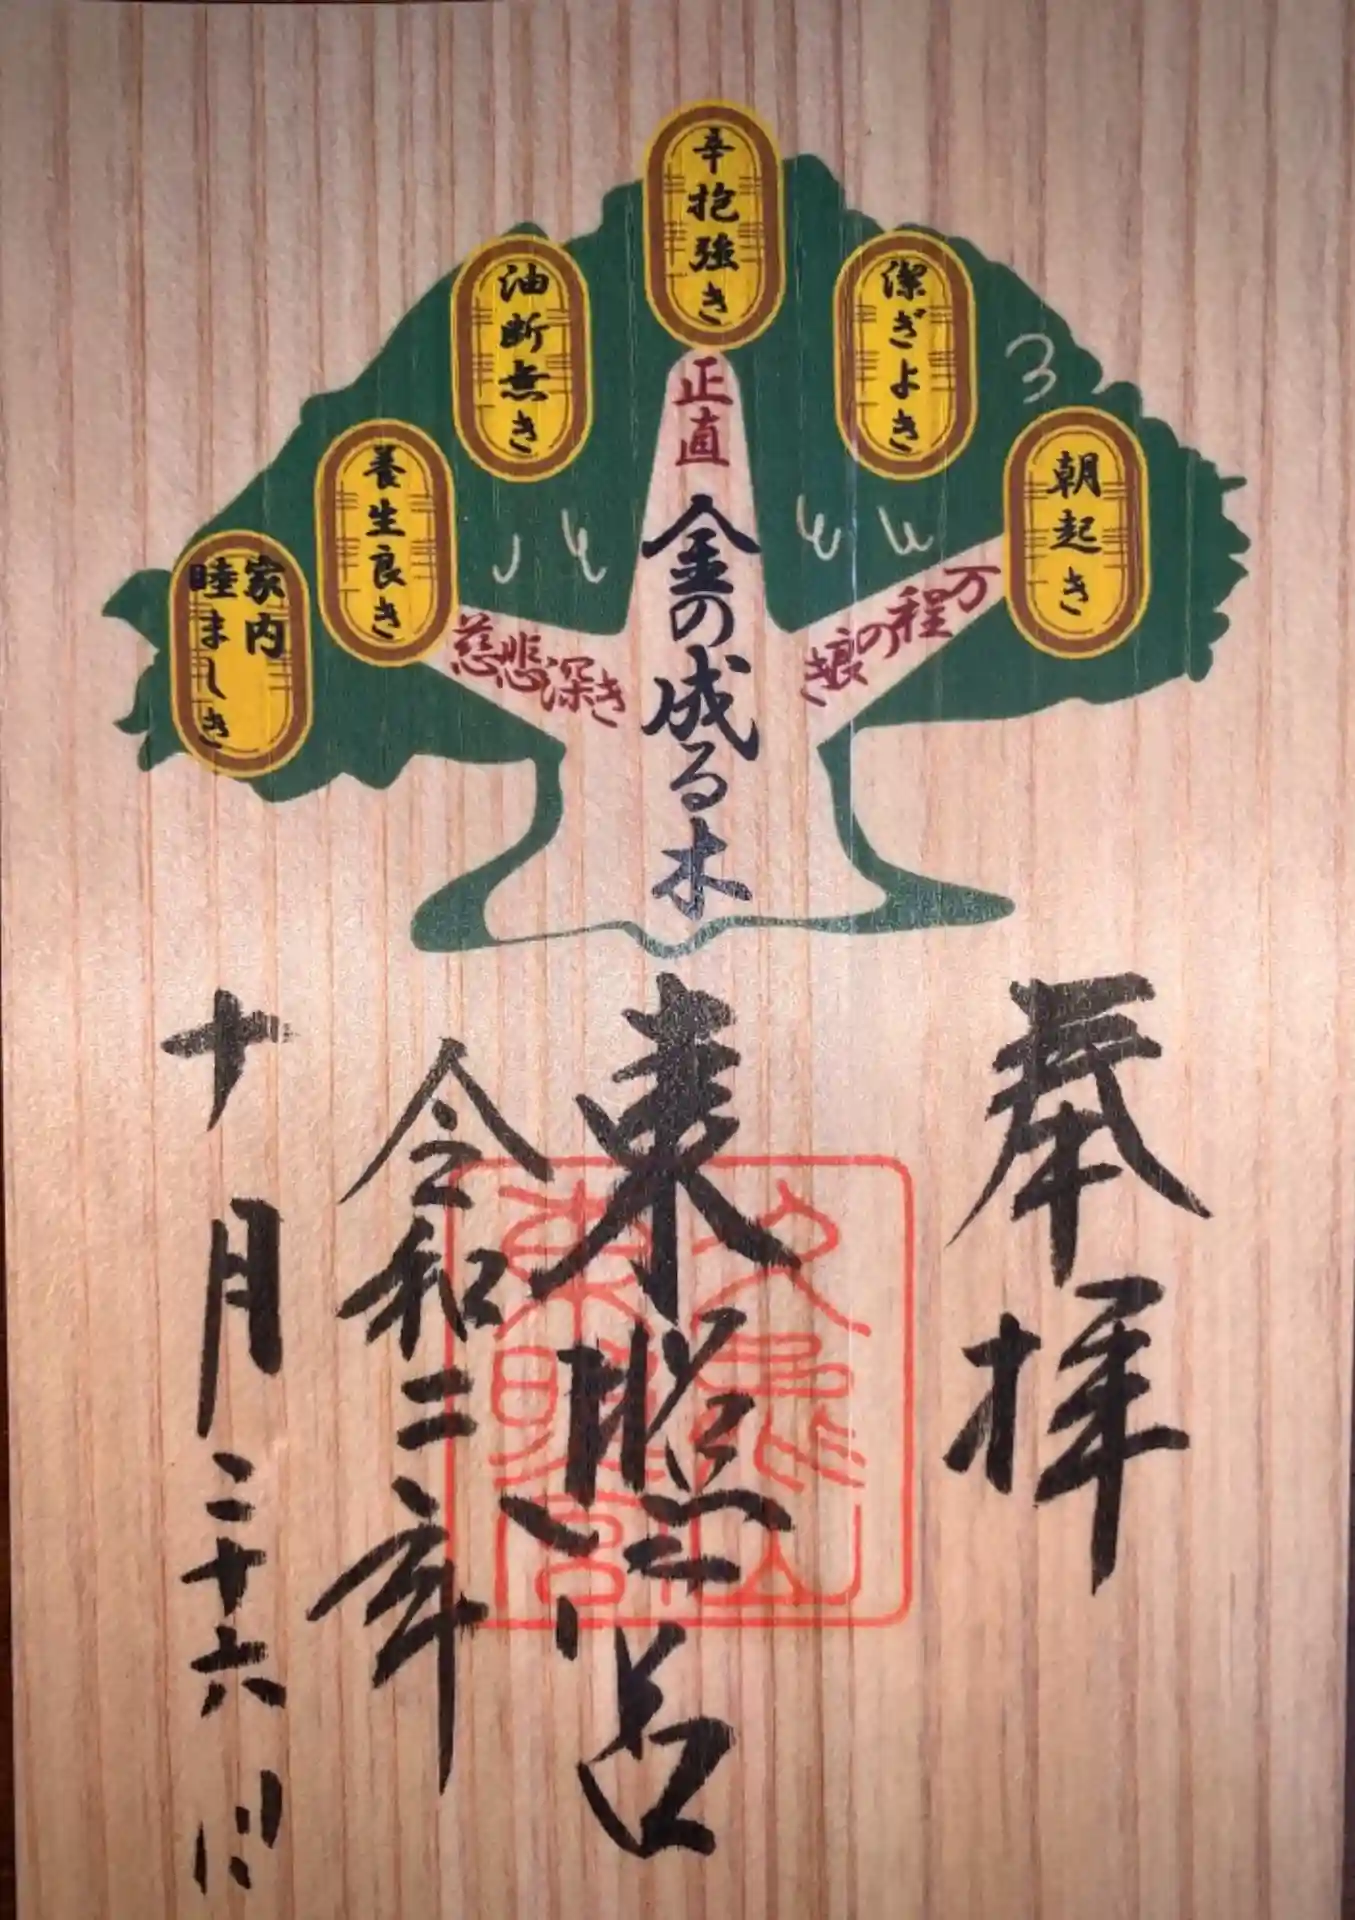 辛抱強き
潔ぎよき
油断無き
朝起き
養生良き
家内
睦ましき
正直
万程の良き
慈悲深き
金の成る木
奉拝
東照宮
令和二年
十月二十六日